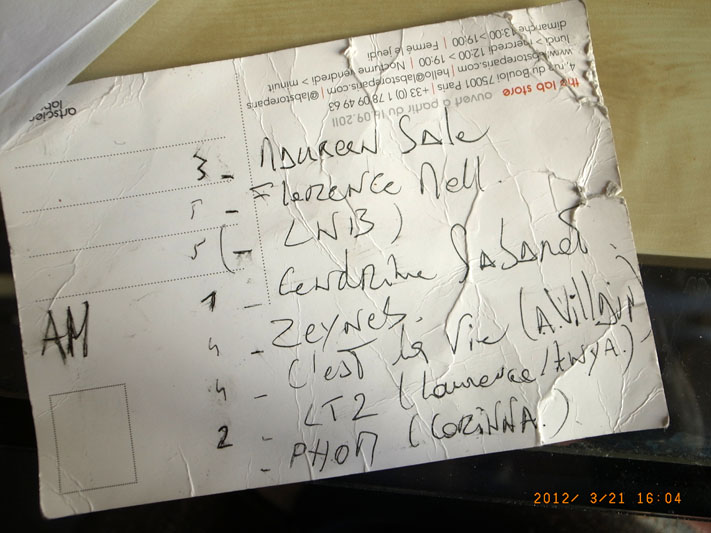 ouvert à partir du 16.09.2011
the lab store
4, rue du Bouloi 75001 Paris | +33 (0) 1 78 09 49 63
www.labstoreparis.com | hello@labstoreparis.com | @labstoreparis
lundi > mercredi 12:00 > 19:00 | Nocturne vendredi > minuit
dimanche 13:00 > 19:00 | Fermé le jeudi
3 - Maureen Sale
5 - Florence Nell.
5 (- LN13)
1 - Cendrine
4 - Zeyneb.
4 - C'est la Vie (A.Villain)
2 - LT2 (Laurence/Anya.)
- PHOM (CORINNA.)
AM
2012/ 3/21 16:04